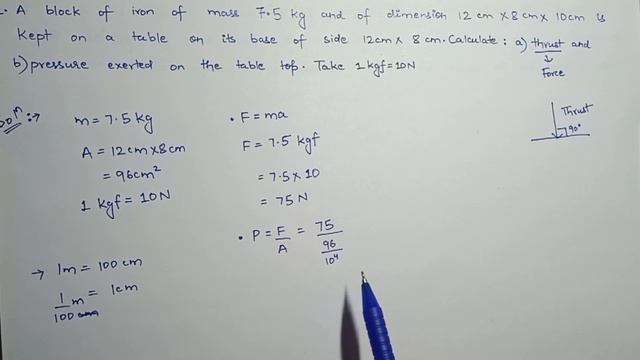 . A block of iron of mass 7.5 kg and of dimension 12 cm × 8 cm × 10 cm is
kept on a table on its base of side 12cm × 8 cm. Calculate: a) thrust and
b) pressure exerted on the table top. Take 1 kgf = 10N
↓
Force
Solⁿ :→
m = 7.5 kg
A = 12cm × 8cm
= 96cm²
1 kgf = 10N
• F = ma
F = 7.5 kgf
= 7.5 × 10
= 75 N
• P = F/A = 75/(96/10⁴)
Thrust
90°
→ 1m = 100 cm
1/100 m = 1cm